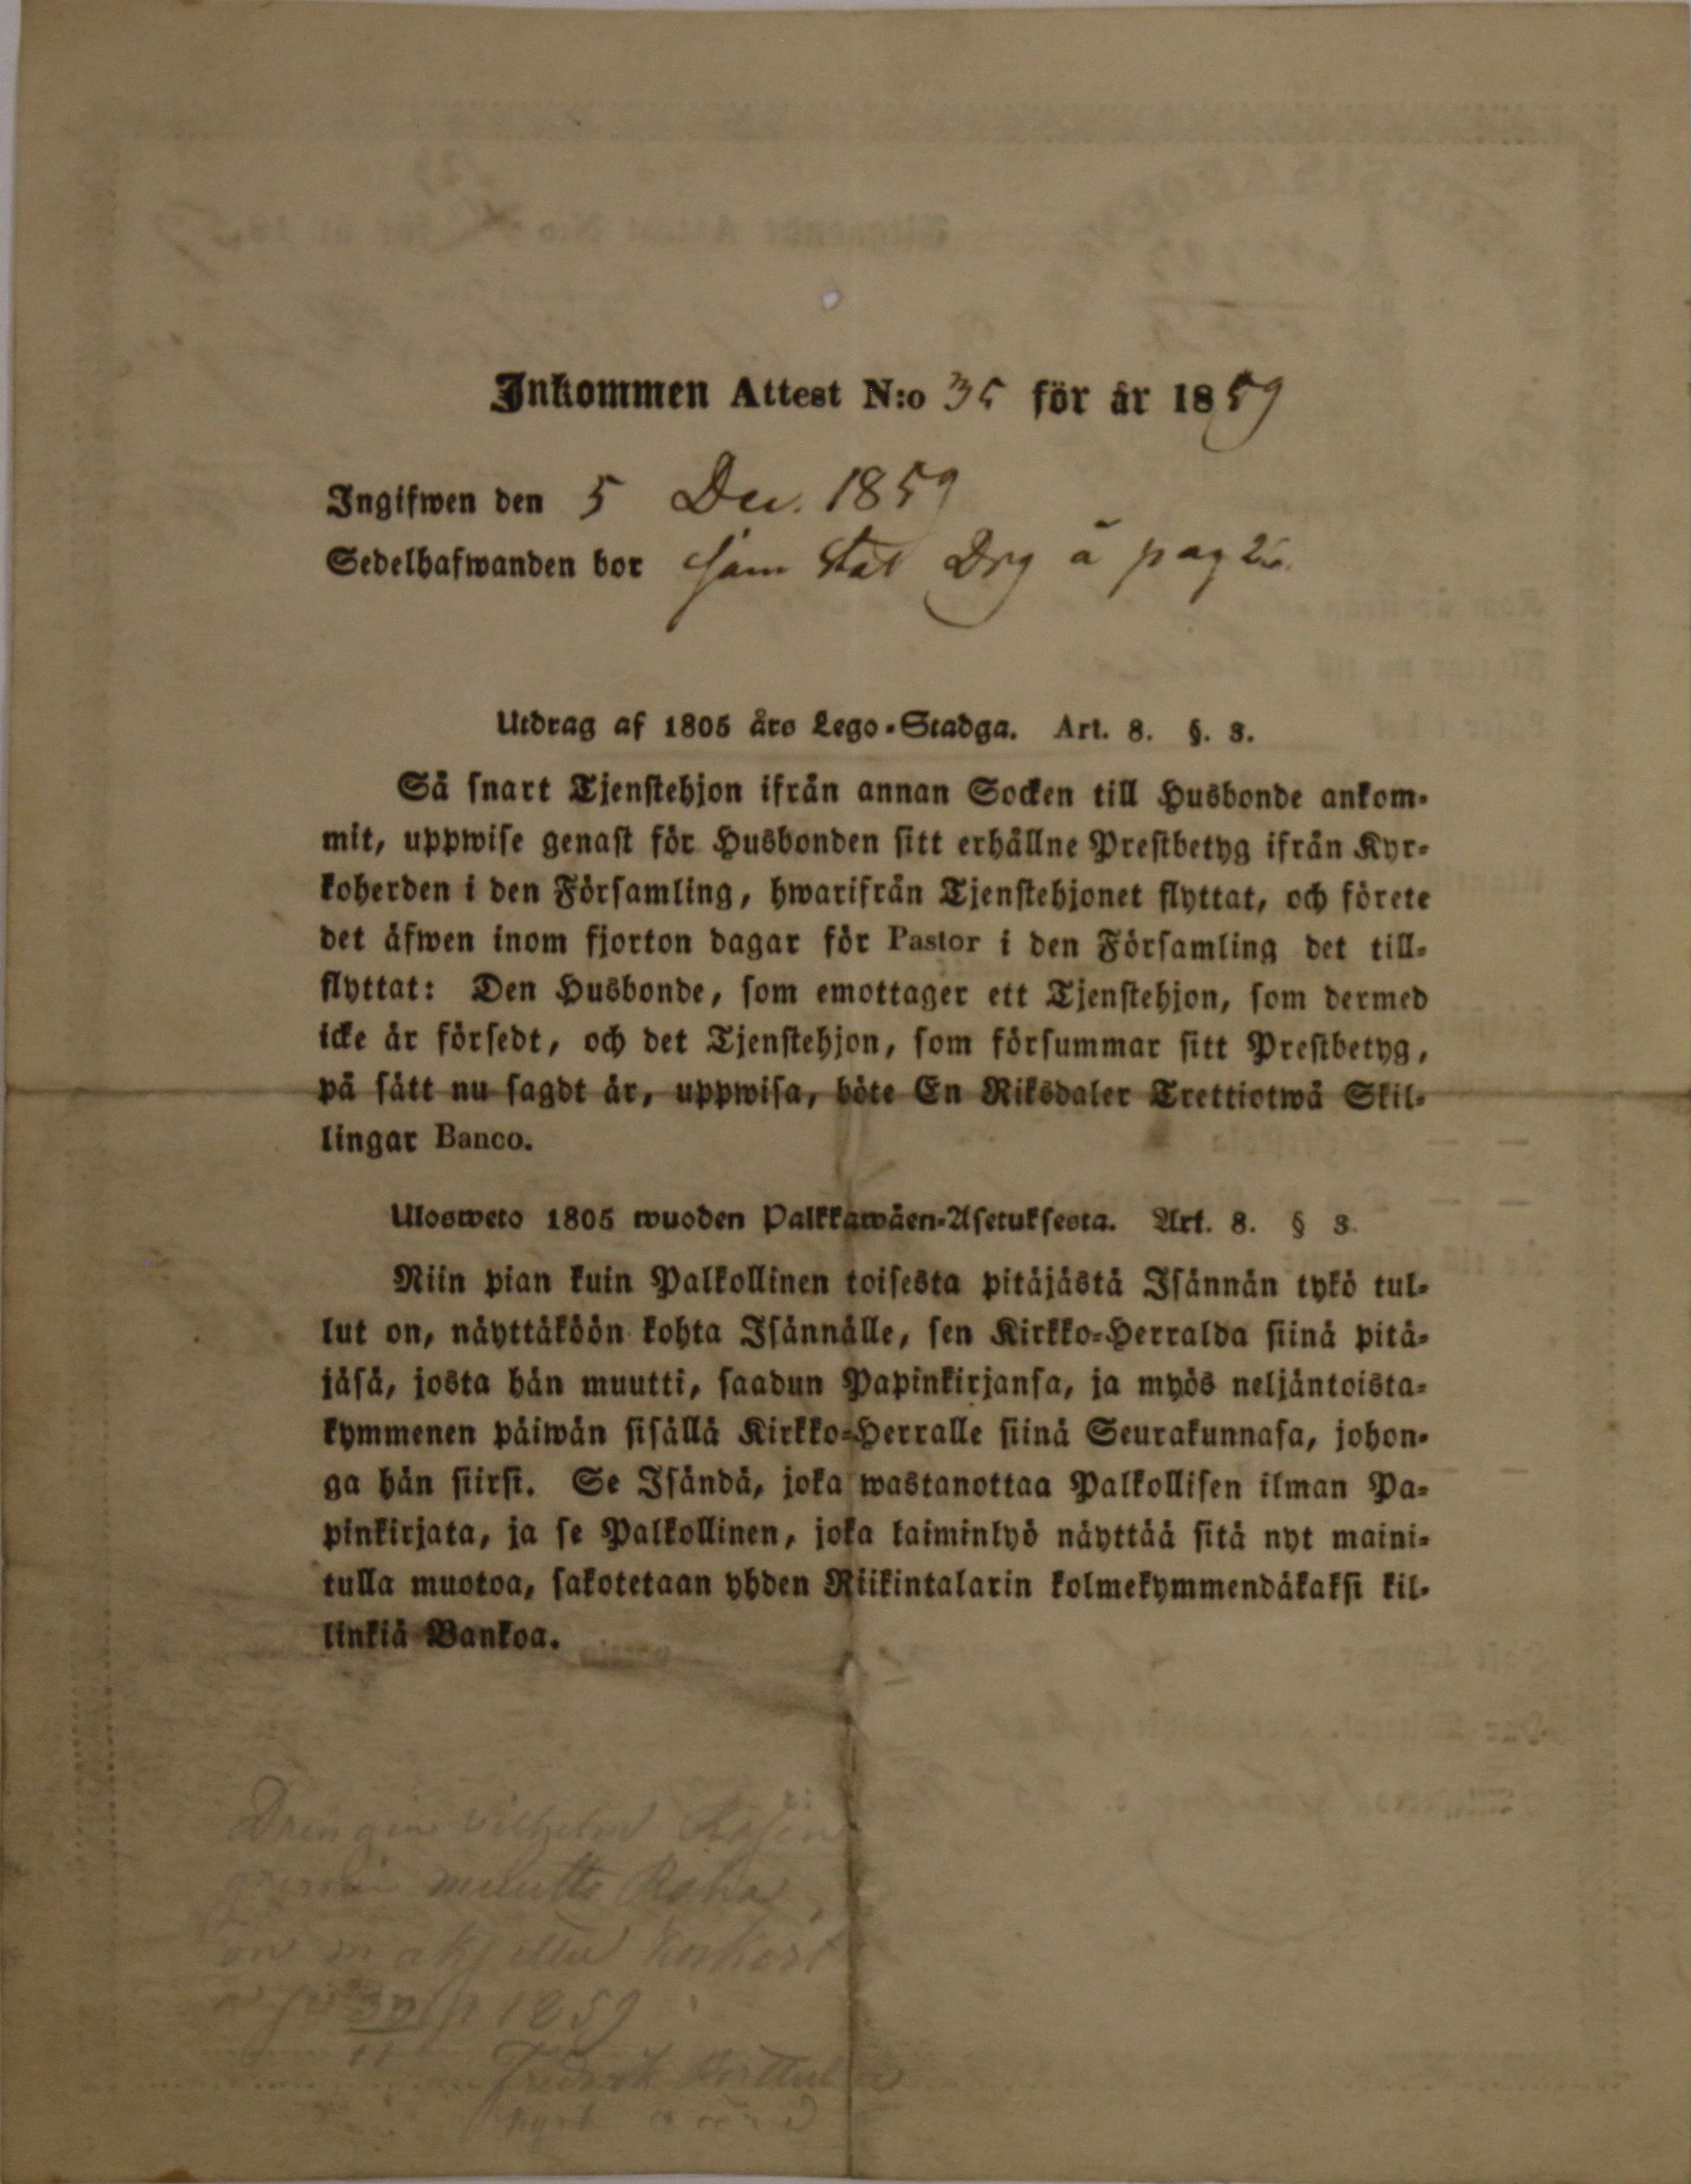 Inkommen Attest N:o 35 för år 1859
Ingifwen den 5 Dec. 1859
Sedelhafwanden bor som Stat Drg å pag 25.
Utdrag af 1805 års Lego-Stadga. Art. 8. §. 3.
Så snart Tjenstehjon ifrån annan Socken till Husbonde ankom-
mit, uppwise genast för Husbonden sitt erhållne Prestbetyg ifrån Kyr-
koherden i den Församling, hwarifrån Tjenstehjonet flyttat, och förete
det äfwen inom fjorton dagar för Pastor i den Församling det till-
flyttat: Den Husbonde, som emottager ett Tjenstehjon, som dermed
icke är försedt, och det Tjenstehjon, som försummar sitt Prestbetyg,
på sätt nu sagdt är, uppwisa, böte En Riksdaler Trettiotwå Skil-
lingar Banco.
Ulosweto 1805 wuoden Palkkawäen-Asetuksesta. Art. 8. § 3.
Niin pian kuin Palkollinen toisesta pitäjästä Isännän tykö tul-
lut on, näyttäköön kohta Isännälle, sen Kirkko-Herralda siinä pitä-
jäsä, josta hän muutti, saadun Papinkirjansa, ja myös neljäntoista-
kymmenen päiwän sisällä Kirkko-Herralle siinä Seurakunnasa, johon-
ga hän siirsi. Se Isändä, joka wastanottaa Palkollisen ilman Pa-
pinkirjata, ja se Palkollinen, joka laiminlyö näyttää sitä nyt maini-
tulla muotoa, sakotetaan yhden Riikintalarin kolmekymmendäkaksi kil-
linkiä Bankoa.
Drengin Vilhelm
muutto Raha
on maksettu
1859
Fredrik